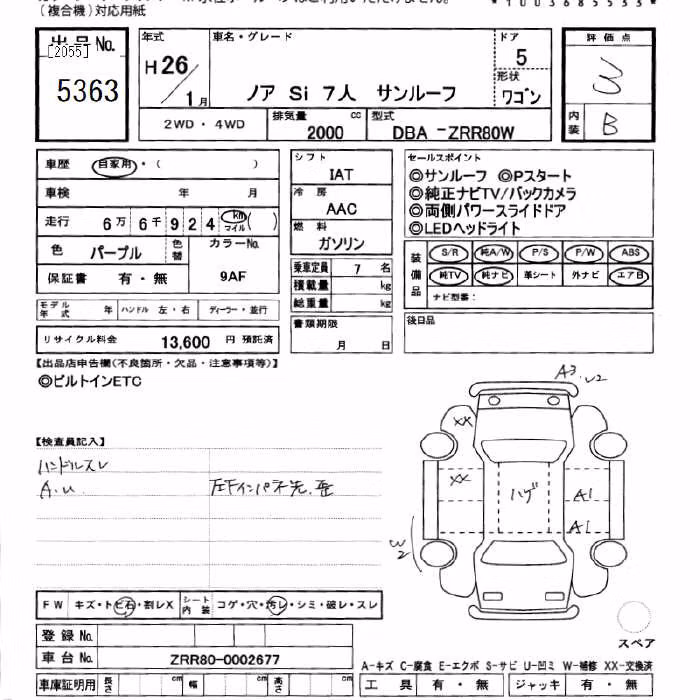 (複合機)対応用紙
*1003685533*
出品No.
[2055]
5363
年式
H26/1月
車名・グレード
ノア Si 7人 サンルーフ
ドア
5
形状
ワゴン
2WD・4WD
排気量
2000 cc
型式
DBA -ZRR80W
評価点
3
内装
B
車歴 自家用・( )
車検 年 月
走行 6万 6千 9 2 4 km マイル ( )
色 パープル
色替
カラーNo.
9AF
保証書 有・無
モデル年式 年 ハンドル 左・右 ディーラー・並行
リサイクル料金 13,600 円 預託済
シフト
IAT
冷房
AAC
燃料
ガソリン
乗車定員 7 名
積載量 kg
総重量 kg
書類期限
月 日
セールスポイント
◎サンルーフ ◎Pスタート
◎純正ナビTV/バックカメラ
◎両側パワースライドドア
◎LEDヘッドライト
装備品
S/R 純A/W P/S P/W ABS
純TV 純ナビ 革シート 外ナビ エアB
ナビ型番:
後日品
【出品店申告欄(不良箇所・欠品・注意事項等)】
◎ビルトインETC
【検査員記入】
ハンドルスレ
A.U
左下インパネ先.歪
A3.U2
XX
XX
ハゲ
A1
A1
W2
FW キズ・トビ石・割レX
シート内装 コゲ・穴・汚レ・シミ・破レ・スレ
登録No.
車台No. ZRR80-0002677
車庫証明用 長さ cm 幅 cm 高さ cm
スペア
A-キズ C-腐食 E-エクボ S-サビ U-凹ミ W-補修 XX-交換済
工具 有・無 ジャッキ 有・無